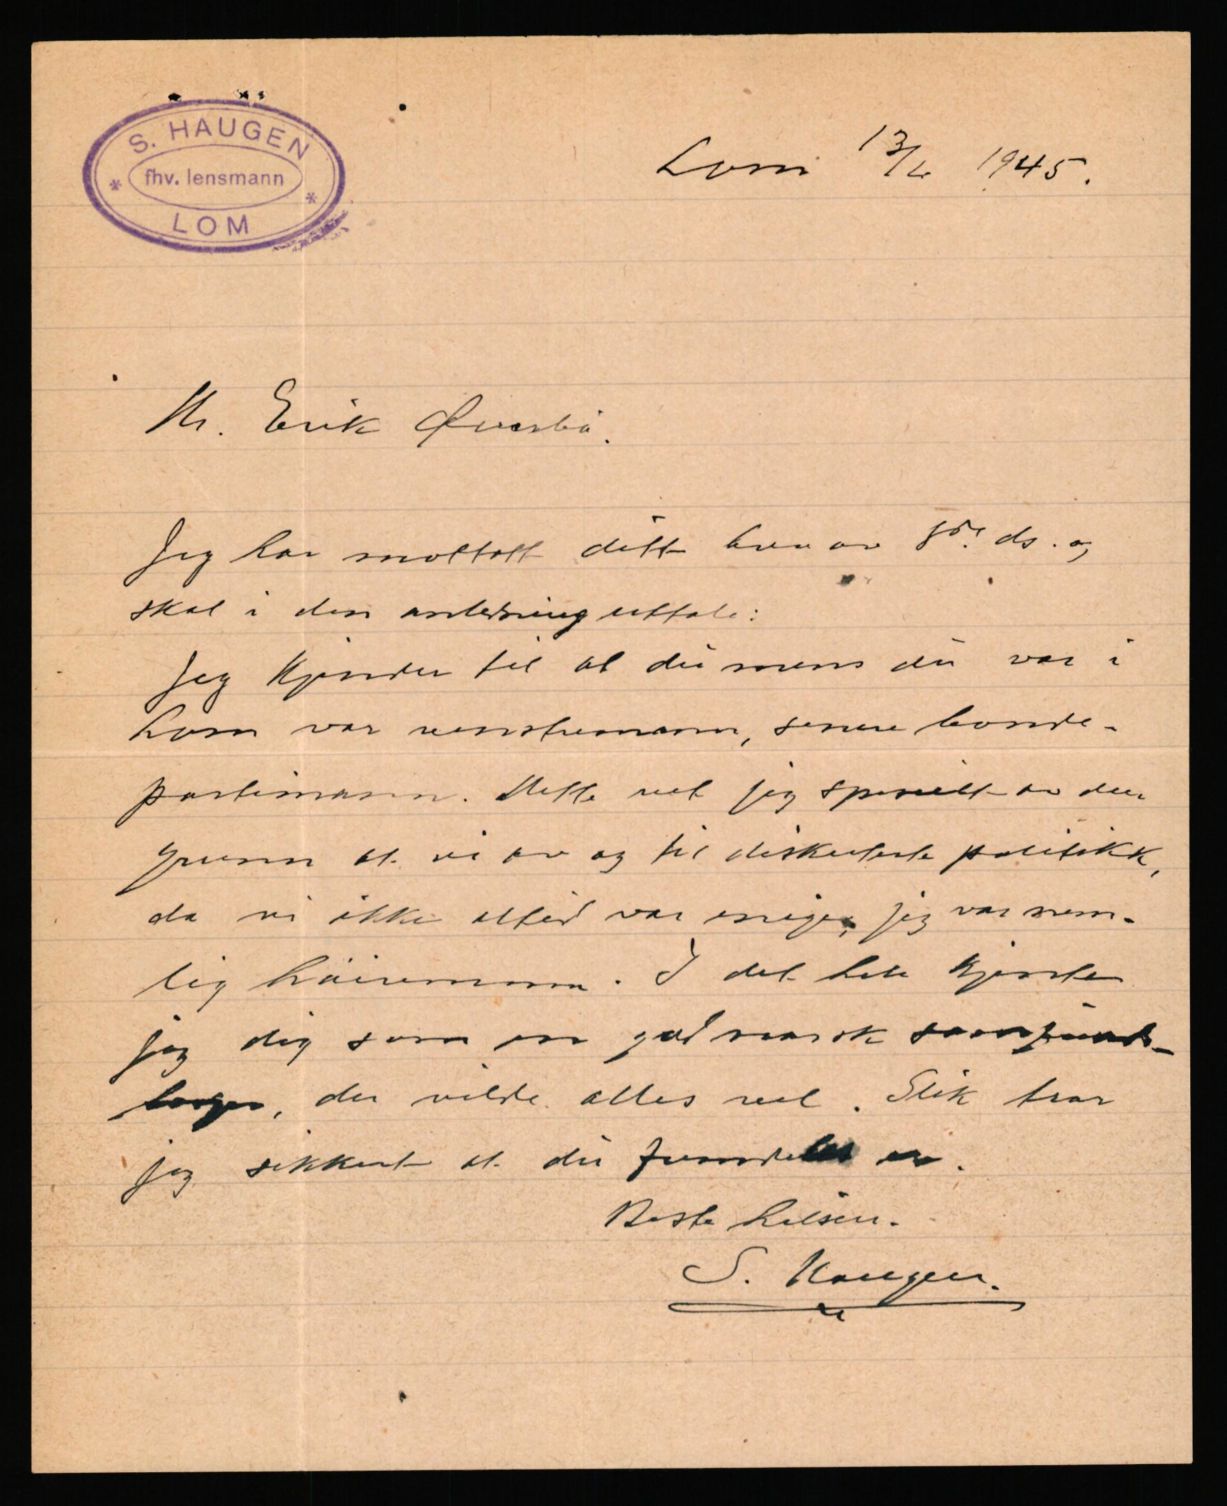 S. HAUGEN
fhv. lensmann
LOM
Lom 13/6 1945.
Hr. Erik Øverbö.
Jeg har mottatt ditt brev av ds. og
skal i den anledning uttale:
Jeg kjender til at du mens du var i
Lom var venstremann, senere bonde-
partimann. Dette vet jeg specielt av den
grunn at vi av og til diskuterte politikk,
da vi ikke altid var enige, jeg var nem-
lig höiremann. I det hele kjente
jeg dig som en god norsk samfunds-
borger, der vilde alles vel. Slik tror
jeg sikkert at du fremdeles er.
Beste hilsen.
S. Haugen.